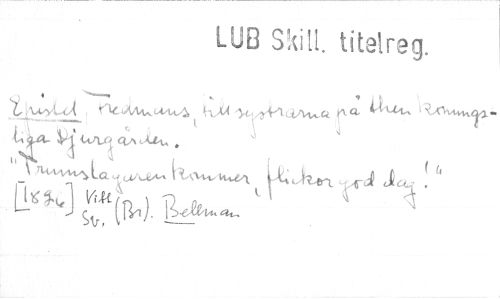 LUB Skill. titelreg.
Epistel, Fredmans, till systrarna på then konungs-
liga Djurgården.
"Trumslagaren kommer, flickor god dag!"
[1896] Vitt
Sv. (Br). Bellman